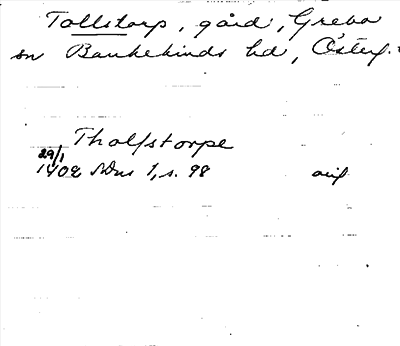 Tollstorp, gård, Grebo
sn Bankekinds hd, Österg.
Tholfstorpe
29/1
1402 SDns 1, s. 98 avif